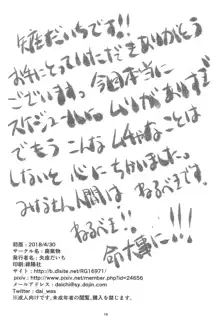 矢座だいちです!!
お手にとっていただきありがとう
ございます。今回本当に
スケジュールにムリがありすぎ
でもうこんなムチャなことは
しないと心にちかいました。
みなさん人間はねるべきです。
命大事に!!!
初版:2018/4/30
サークル名:廃棄物
発行者名:矢座だいち
印刷:緑陽社
サイト:http://b.dlsite.net/RG16971/
pixiv:www.pixiv.net/member.php?id=24656
メールアドレス:daichi@sy.dojin.com
Twitter:dai_wss
※成人向けです。未成年者の閲覧、購入は禁じます。